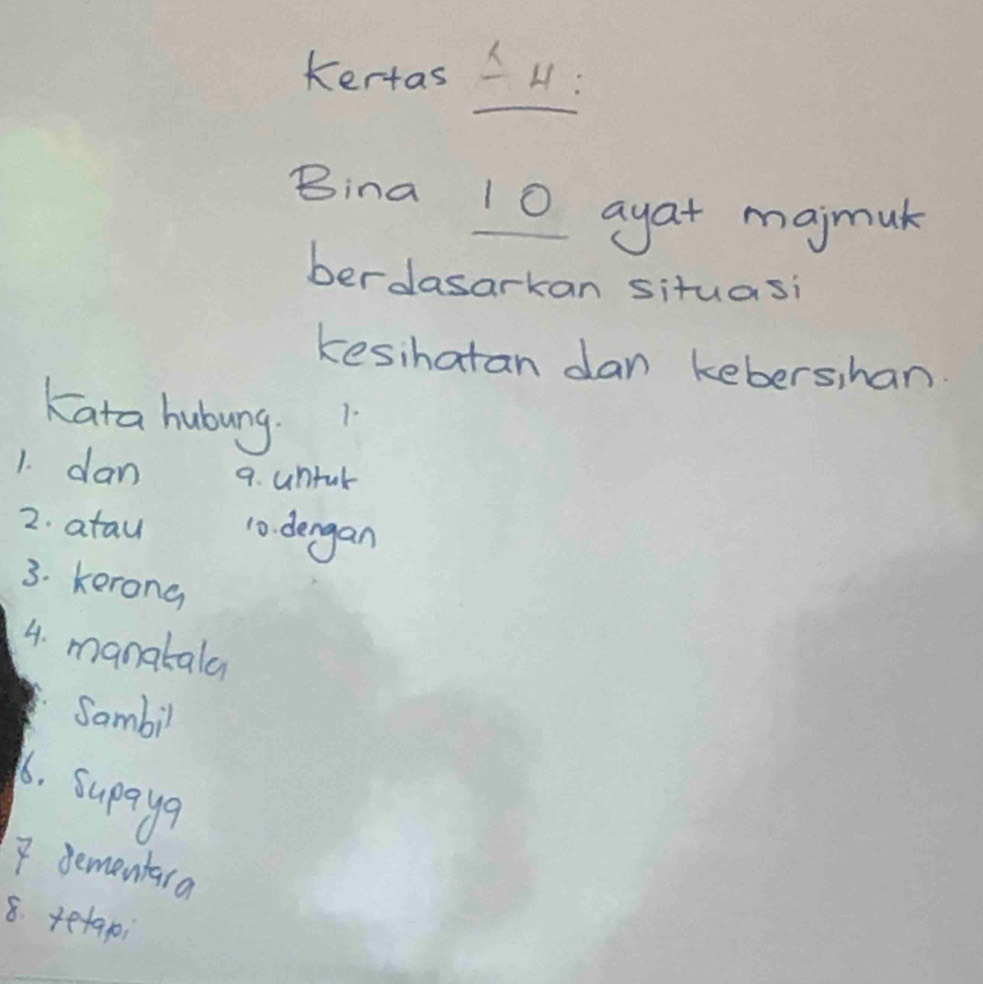 Kertas A4:
Bina 10 ayat majmuk
berdasarkan situasi
kesihatan dan kebersihan.
Kata hubung. 1.
1. dan
2. atau
3. kerana
4. manakala
Sambil
6. Supaya
7 sementara
8. tetapi
9. untuk
10. dengan